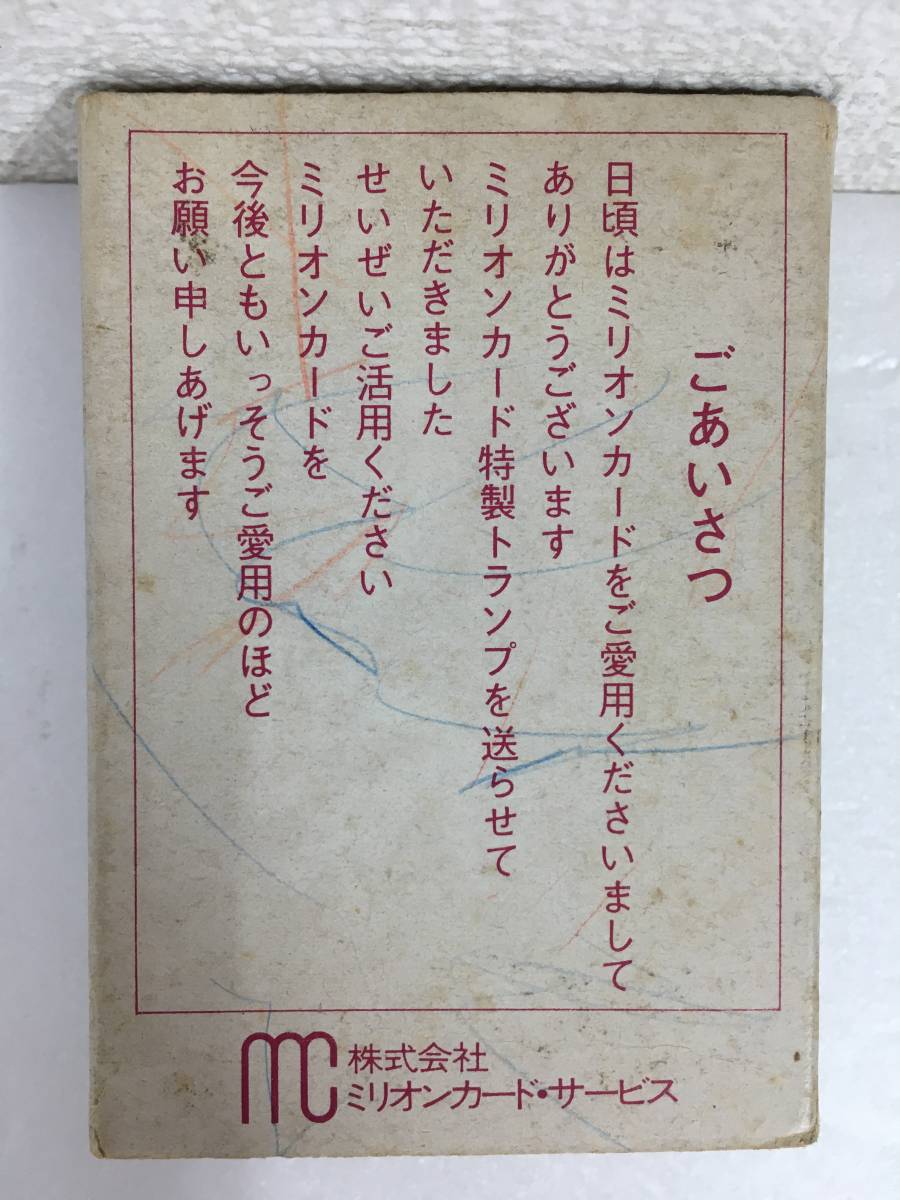 ごあいさつ
日頃はミリオンカードをご愛用くださいまして
ありがとうございます
ミリオンカード特製トランプを送らせて
いただきました
せいぜいご活用ください
ミリオンカードを
今後ともいっそうご愛用のほど
お願い申しあげます
mc
株式会社
ミリオンカード・サービス